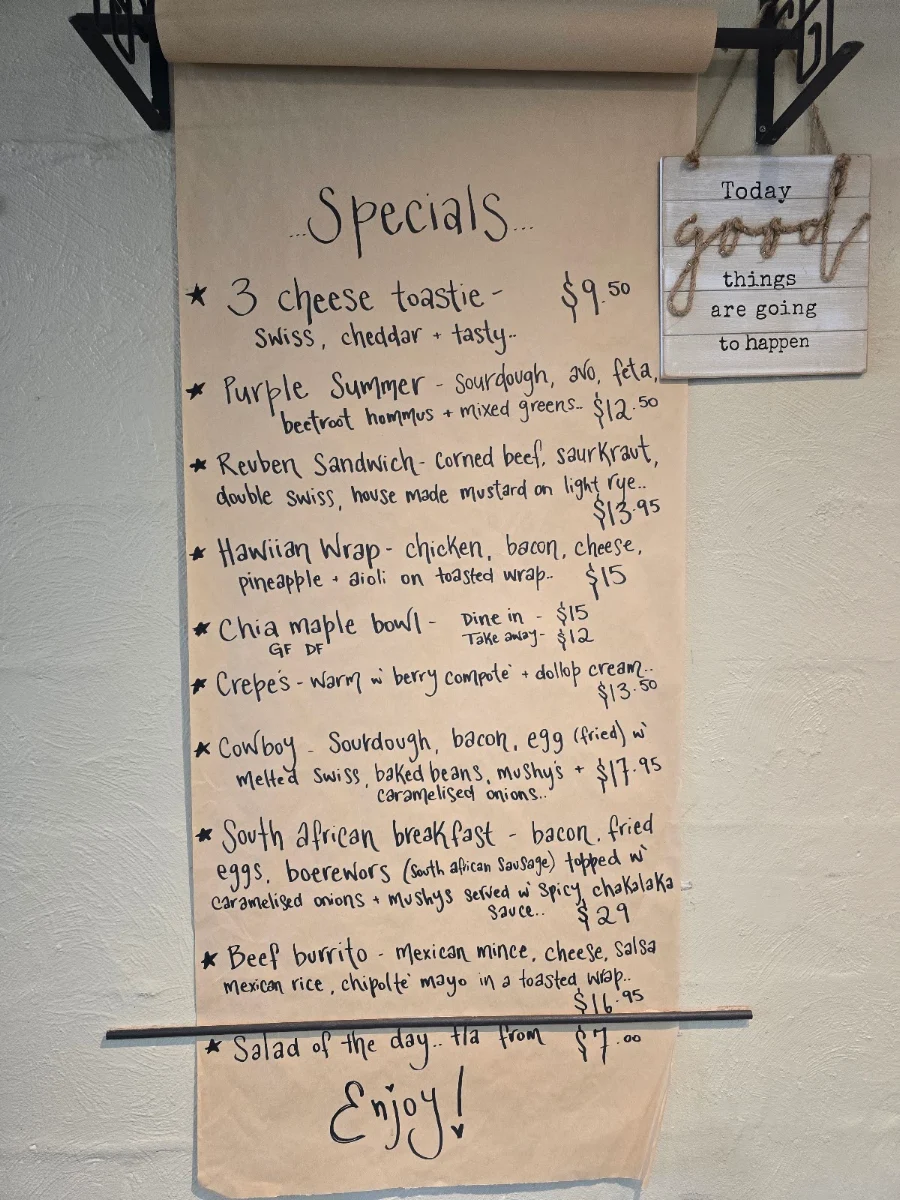 ...Specials...
★ 3 cheese toastie - $9.50
swiss, cheddar + tasty..
★ Purple Summer - sourdough, avo, feta,
beetroot hommus + mixed greens.. $12.50
★ Reuben Sandwich - corned beef, saurkraut,
double swiss, house made mustard on light rye..
$13.95
★ Hawiian Wrap - chicken, bacon, cheese,
pineapple + aioli on toasted wrap.. $15
★ Chia maple bowl - Dine in - $15
GF DF Take away - $12
★ Crepe's - warm w' berry compote' + dollop cream..
$13.50
★ Cowboy - Sourdough, bacon, egg (fried) w'
melted swiss, baked beans, mushy's + $17.95
caramelised onions..
★ South african breakfast - bacon, fried
eggs, boerewors (south african sausage) topped w'
caramelised onions + mushys served w' spicy chakalaka
sauce.. $29
★ Beef burrito - mexican mince, cheese, salsa
mexican rice, chipolte' mayo in a toasted wrap..
$16.95
★ Salad of the day.. t/a from $7.00
Enjoy!
Today
good
things
are going
to happen